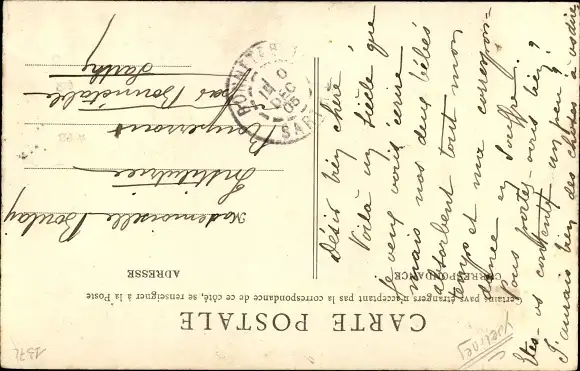 CARTE POSTALE
Certains pays étrangers n'acceptant pas la correspondance de ce côté, se renseigner à la Poste
CORRESPONDANCE
ADRESSE
Désir bien chère!
Voilà un siècle que
je veux vous écrire
mais nos deux bébés
absorbent tout mon
temps et ma correspon-
dance en souffre!
Vous portez-vous bien?
Etes-vs contente un peu?
J'aurais bien des choses à vs dire
Mademoiselle Boulay
Institutrice
par Bonnétable
Sarthe
BONNÉTABLE
SARTHE
10
DEC
05